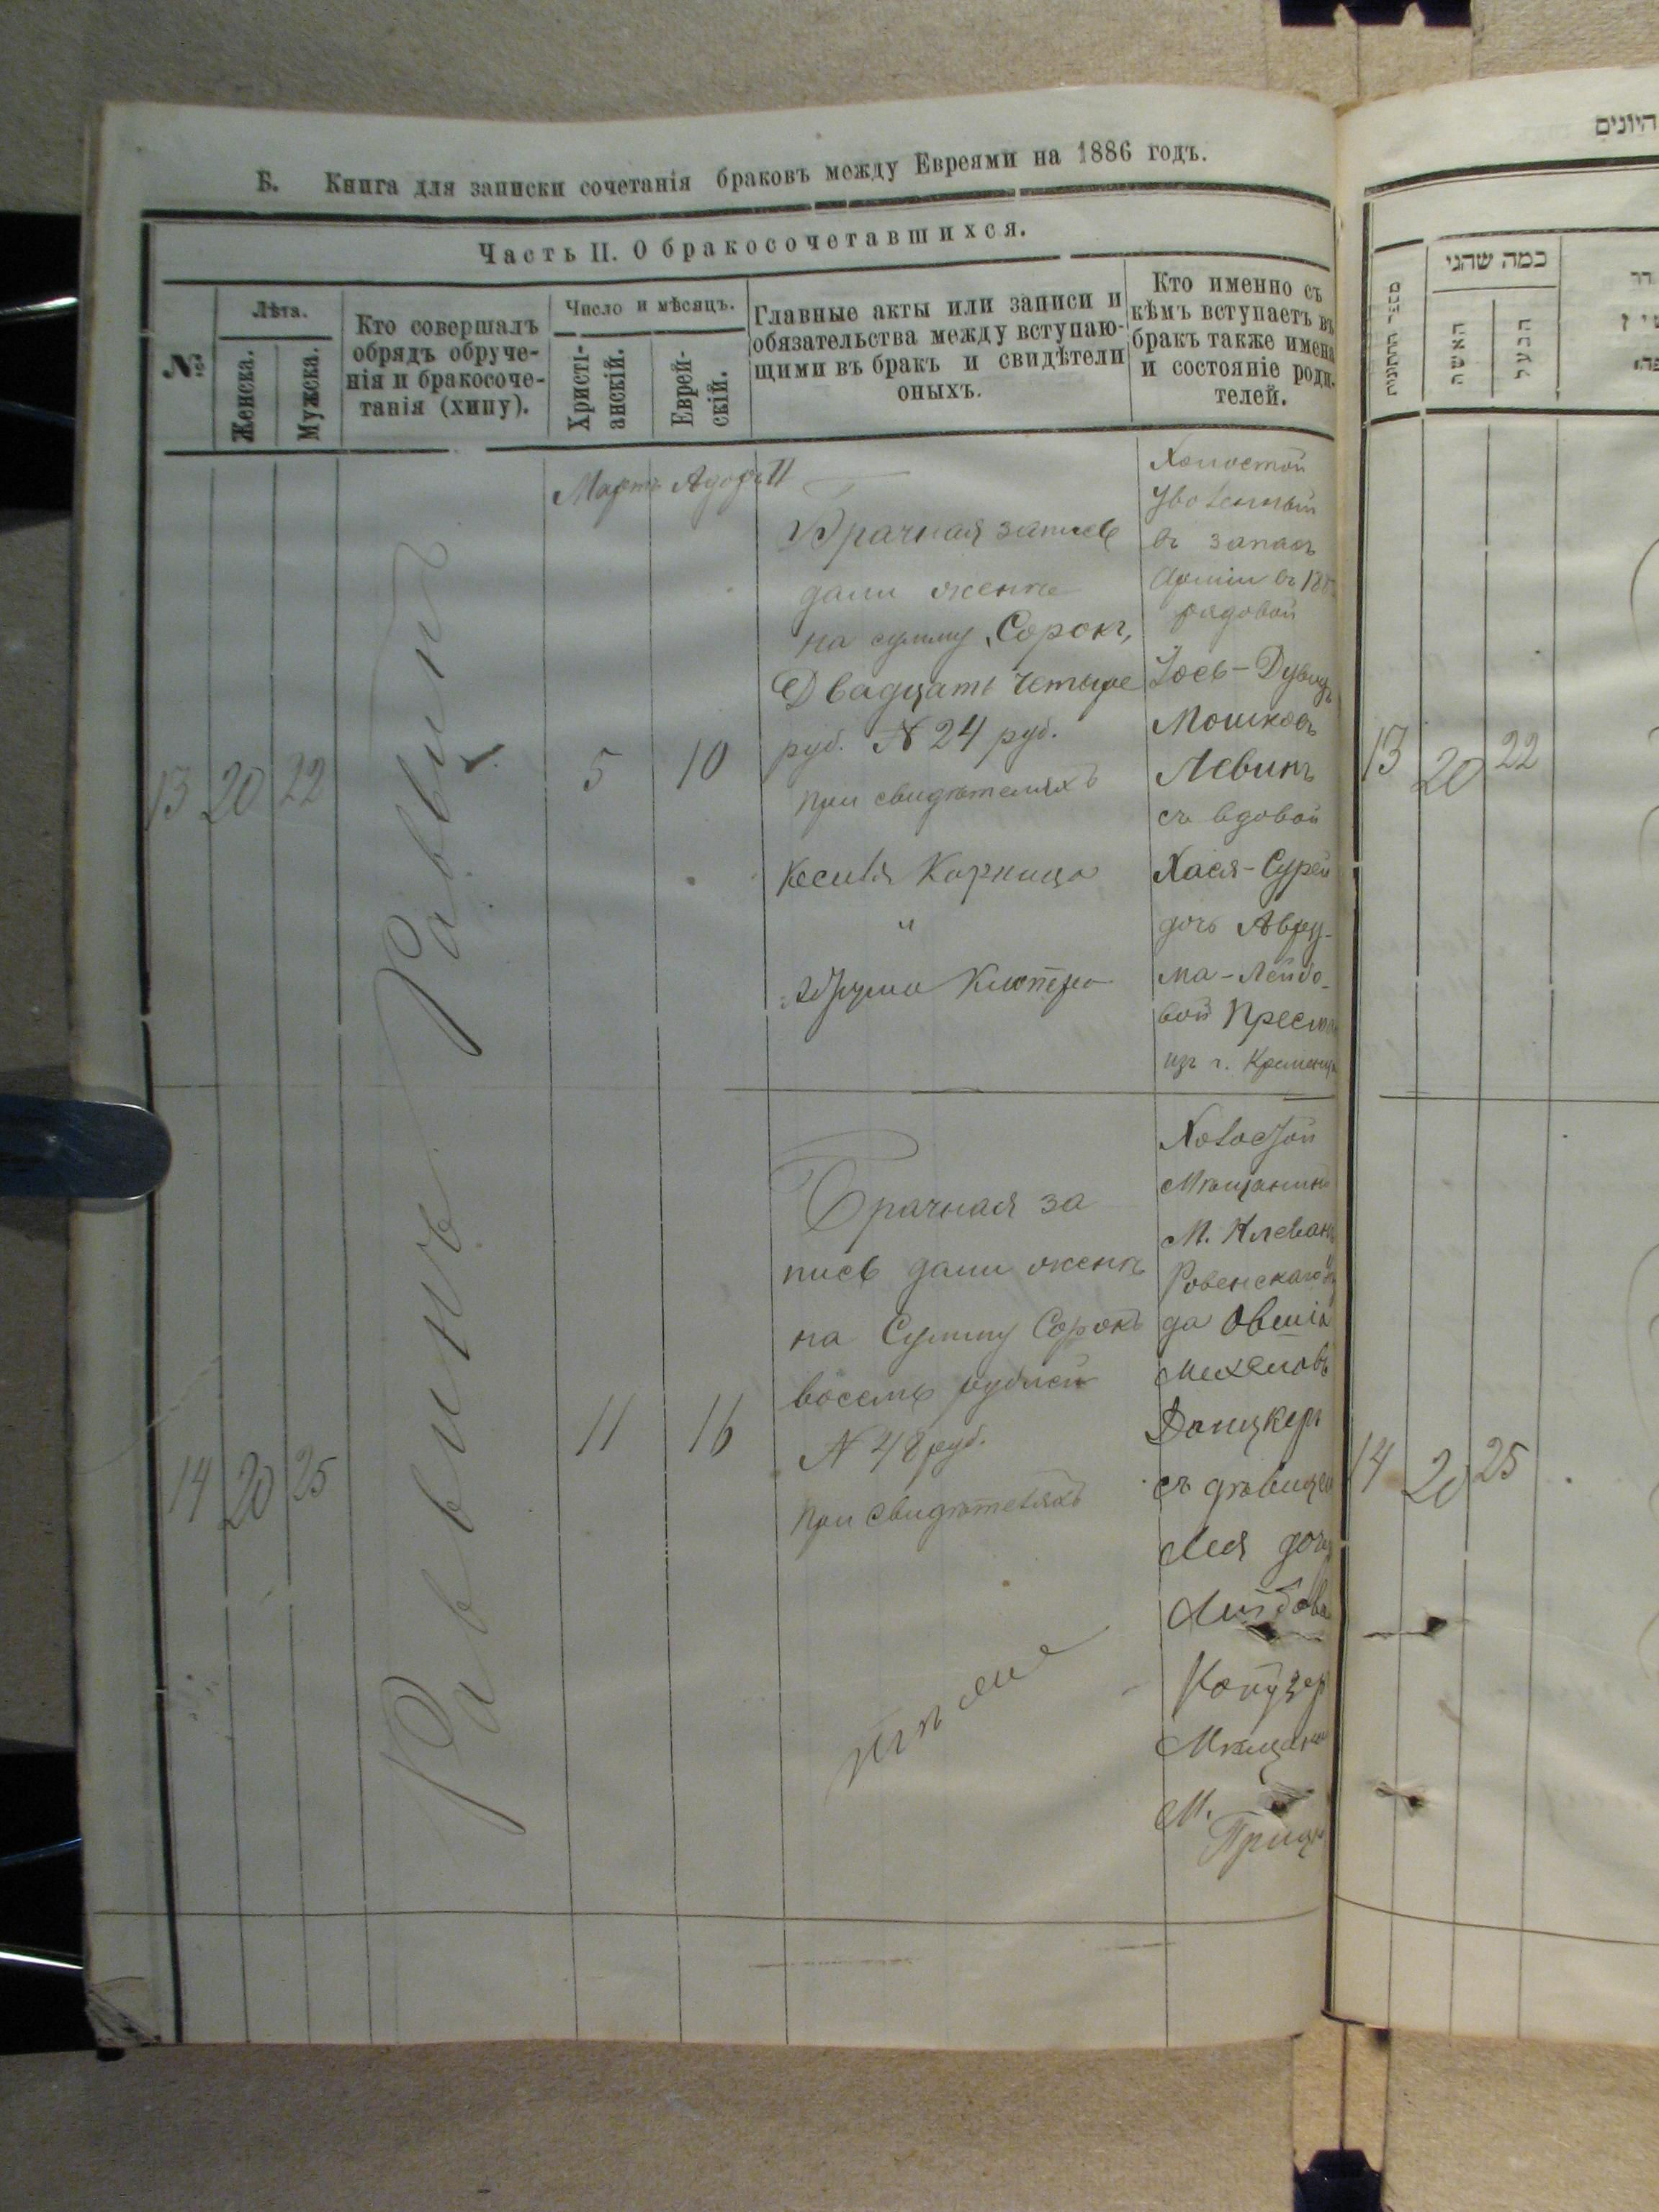 Б. Книга для записки сочетанія браковъ между Евреями на 1886 годъ.
Часть II. О бракосочетавшихся.
№
Лѣта.
Женска.
Мужска.
Кто совершалъ
обрядъ обруче-
нія и бракосоче-
танія (хипу).
Число и мѣсяцъ.
Христі-
анскій.
Еврей-
скій.
Главные акты или записи и
обязательства между вступаю-
щими въ бракъ и свидѣтели
оныхъ.
Кто именно съ
кѣмъ вступаетъ въ
бракъ также имена
и состояніе роди-
телей.
Мартъ Адаръ II
13 20 22
Раввинъ
5 10
Брачная запись
дали женѣ
на сумму
Двадцать четыре
руб. № 24 руб.
при свидѣтеляхъ
Корница
и
Холостой
въ запасъ
Арміи въ 188
рядовой
Мошковъ
Левинъ
съ вдовой
Хася-Сурей
дочь Авру-
ма-Лейбо-
вой
изъ г. Кременца
14 20 25
Раввинъ
11 16
Брачная за
пись дали женѣ
на Сумму Сорокъ
восемь рублей
№ 48 руб.
при Свидѣтеляхъ
тѣхъ же
Холостой
Мѣщанинъ
М. Клевань
Ровенскаго
да Овшія
Михелевъ
съ дѣвицей
Лея дочь
Мѣщанинъ
М.
היונים
מספר החתונות
כמה שהני
האשה
הבעל
13 20 22
14 20 25